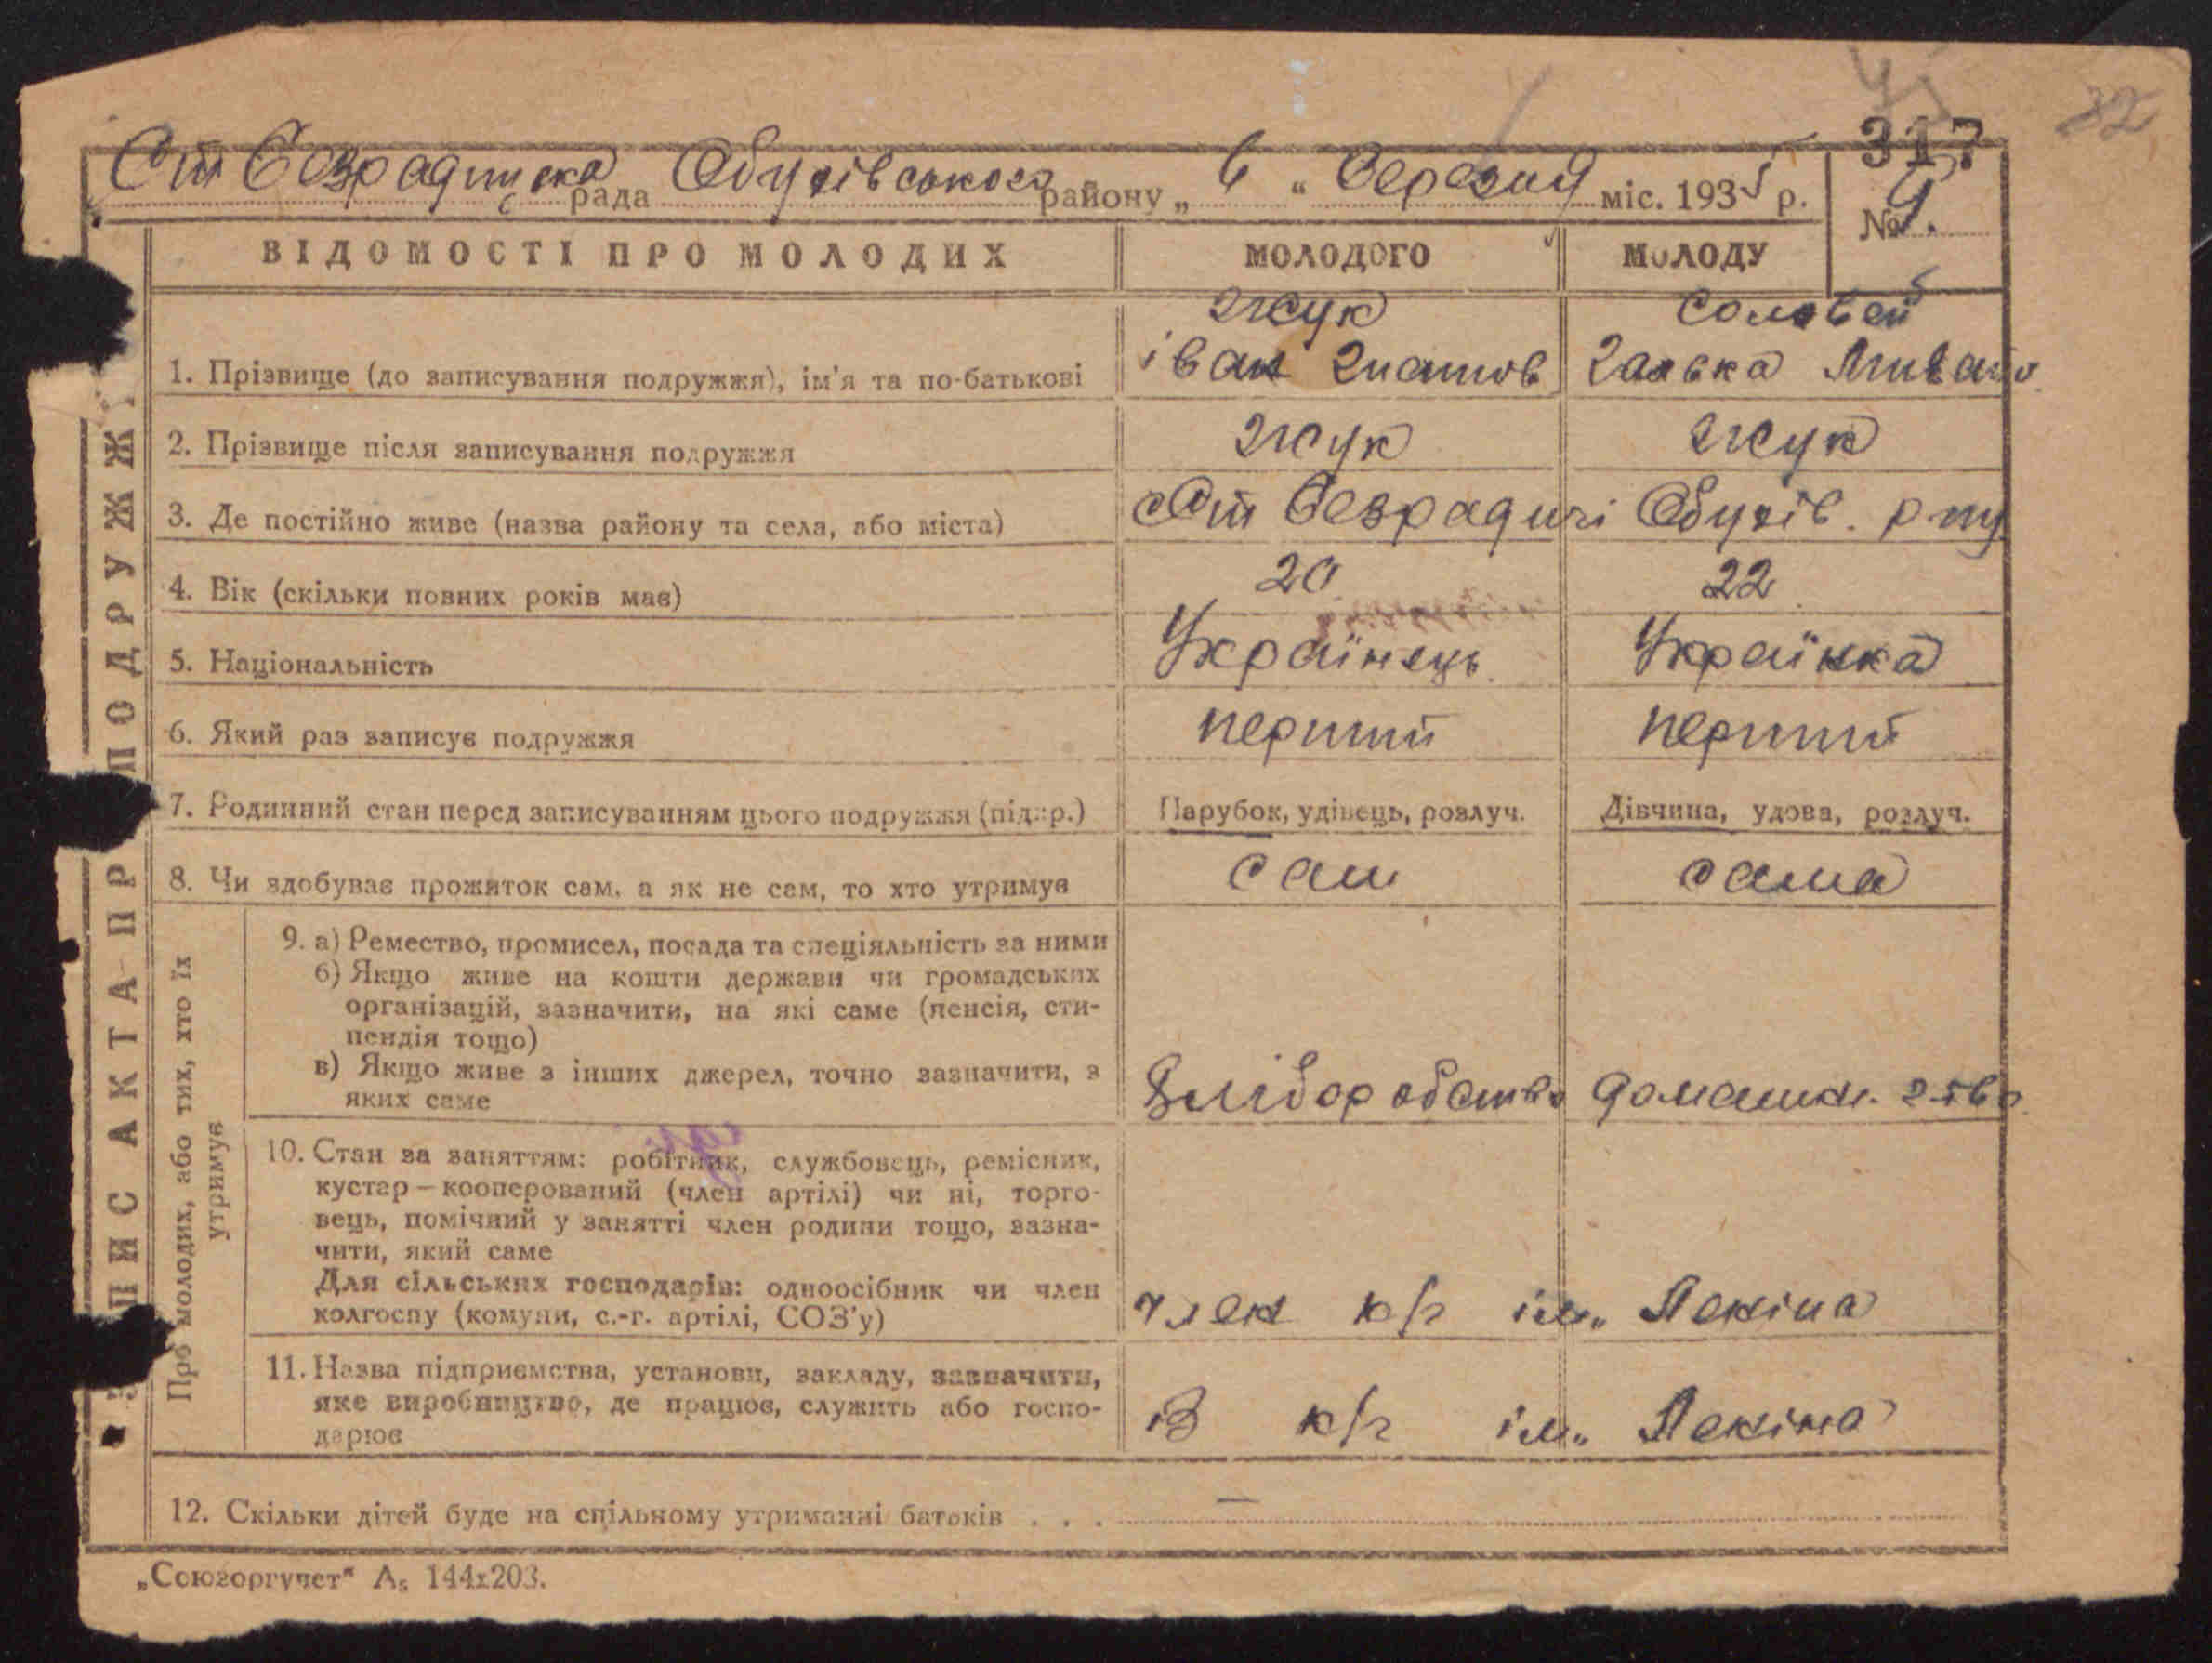 32
317
Ст Безрадицька рада Обухівського району „ 6 “ Березня міс. 1935 р.
№ 9.
ВІДОМОСТІ ПРО МОЛОДИХ МОЛОДОГО МОЛОДУ
Жук Соловей
1. Прізвище (до записування подружжя), ім'я та по-батькові іван Гнатов Галька
2. Прізвище після записування подружжя Жук Жук
3. Де постійно живе (назва району та села, або міста) Ст Безрадичі Обухів. р-ну
4. Вік (скільки повних років має) 20 22
5. Національність Українець Українка
6. Який раз записує подружжя перший перший
7. Родинний стан перед записуванням цього подружжя (підкр.) Парубок, удівець, розлуч. Дівчина, удова, розлуч.
8. Чи здобуває прожиток сам, а як не сам, то хто утримує сам сама
9. а) Ремество, промисел, посада та спеціяльність за ними
б) Якщо живе на кошти держави чи громадських
організацій, зазначити, на які саме (пенсія, сти-
пендія тощо)
в) Якщо живе з інших джерел, точно зазначити, з
яких саме Хліборобство домашн. г-тво
10. Стан за заняттям: робітник, службовець, ремісник,
кустар — кооперований (член артілі) чи ні, торго-
вець, помічний у занятті член родини тощо, зазна-
чити, який саме
Для сільських господарів: одноосібник чи член
колгоспу (комуни, с.-г. артілі, СОЗ'у) член к/г ім. Леніна
11. Назва підприємства, установи, закладу, зазначити,
яке виробництво, де працює, служить або госпо-
дарює в к/г ім. Леніна
12. Скільки дітей буде на спільному утриманні батьків . . . —
Про молодих, або тих, хто їх
утримує
ЗАПИС АКТА ПР ПОДРУЖЖ
„Союзоргучет“ А₅ 144х203.